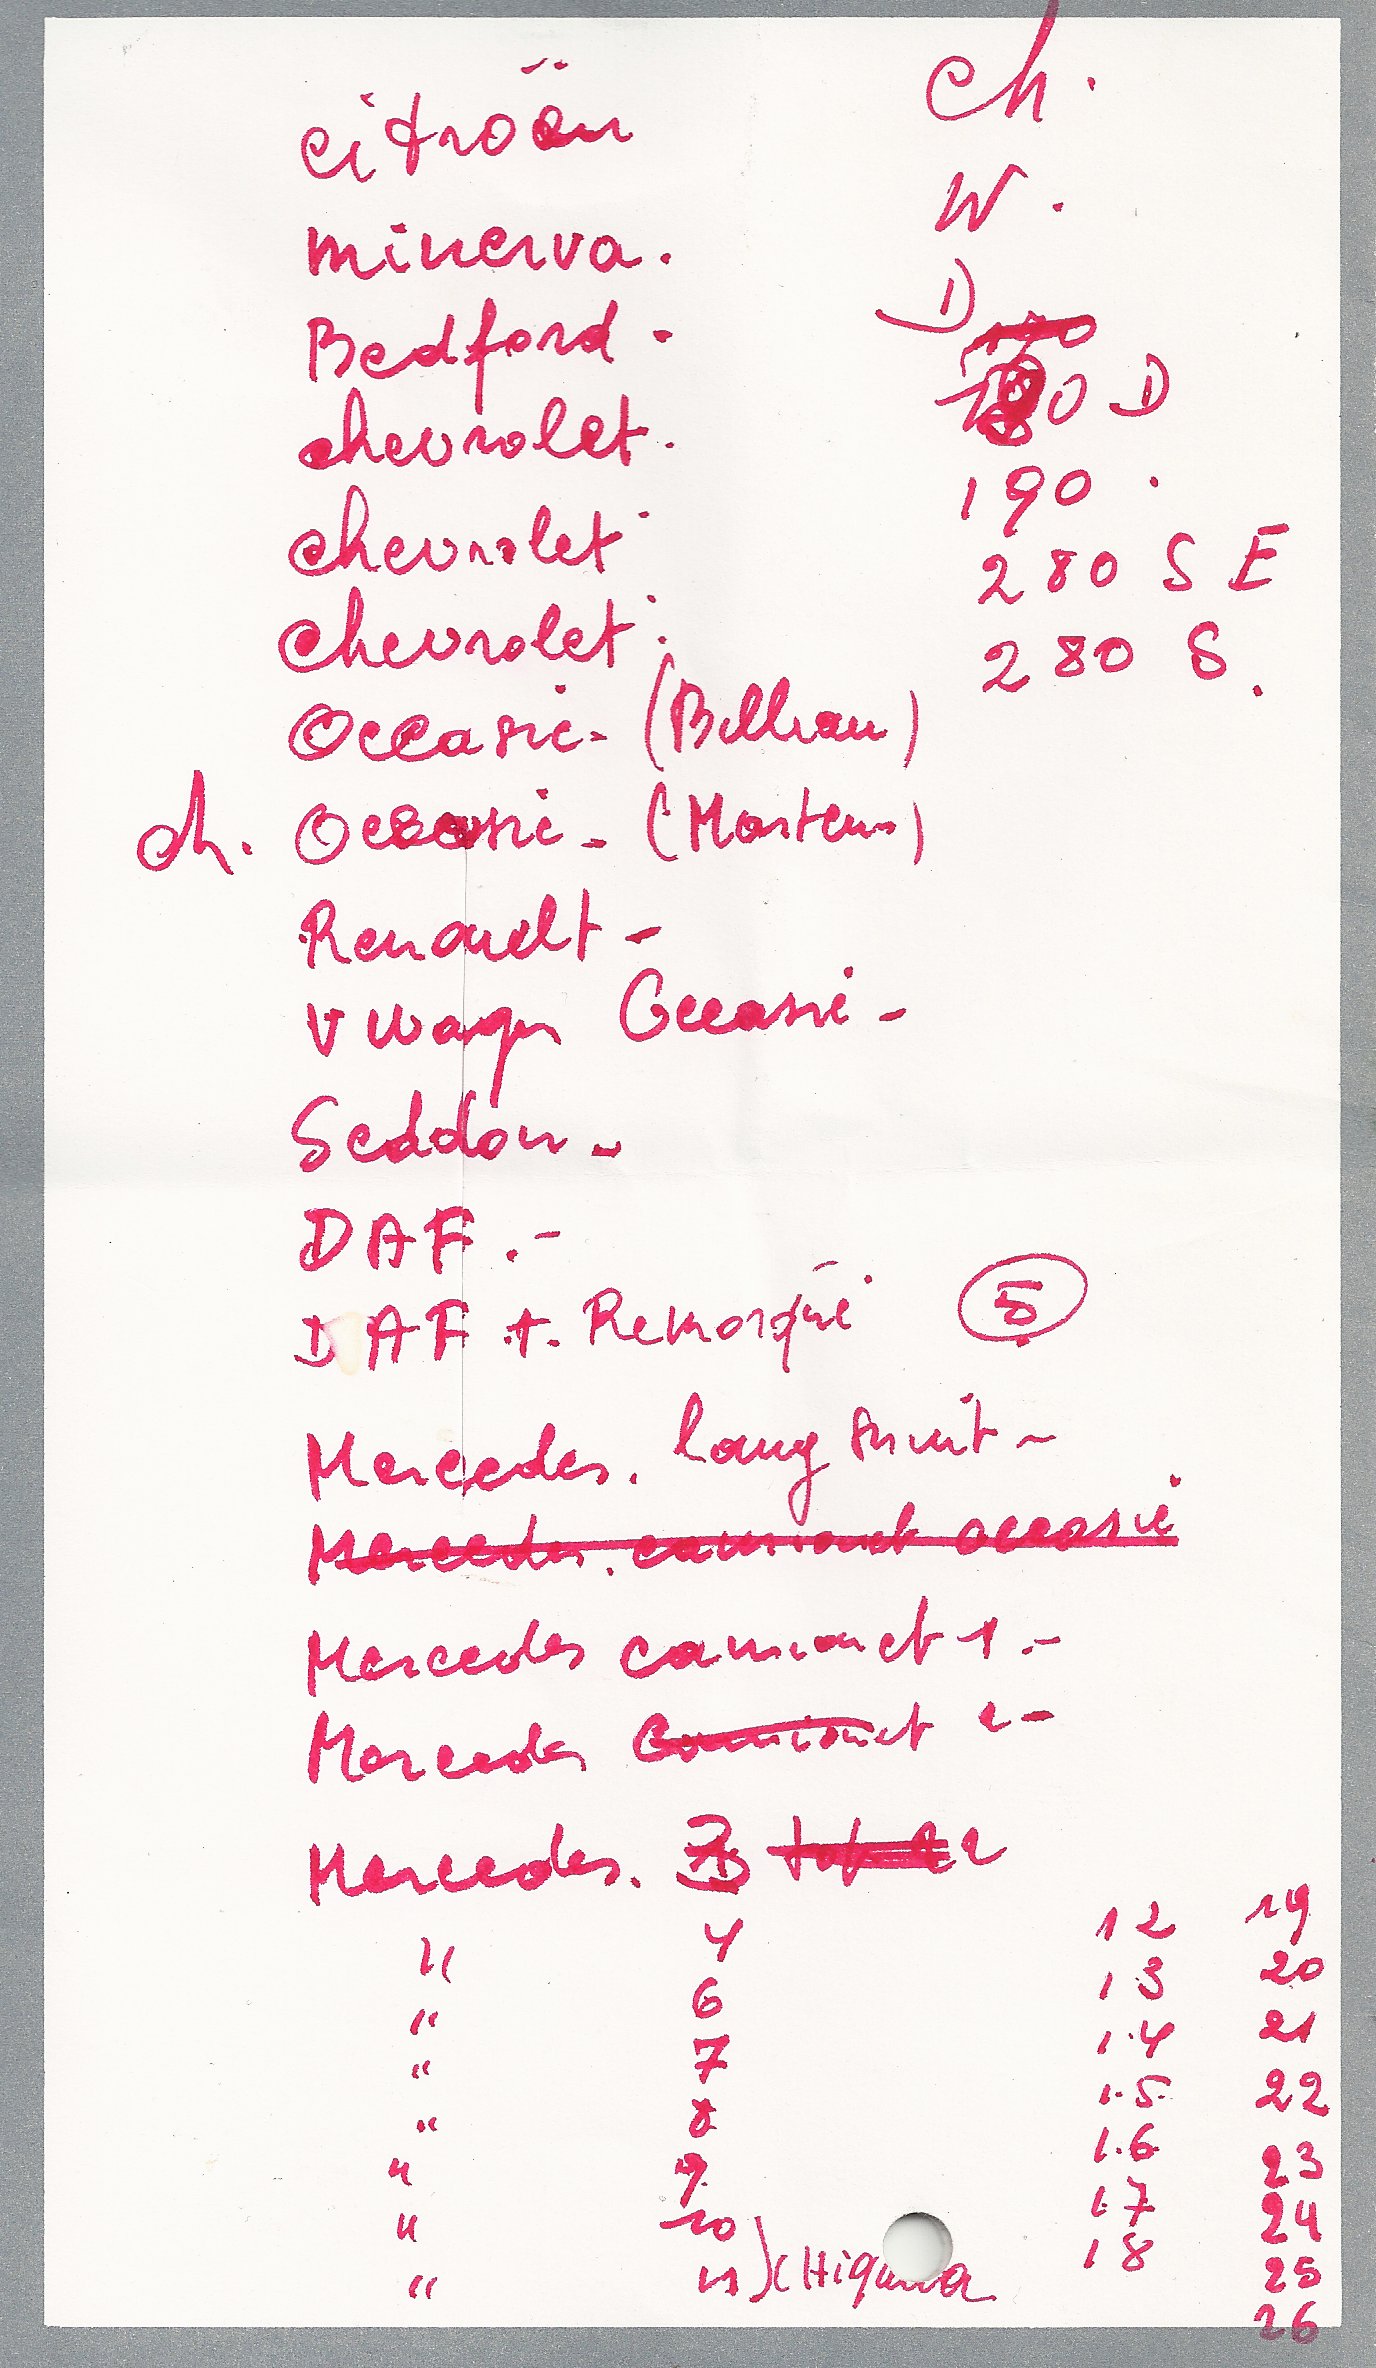 citroën
minerva.
Bedford -
chevrolet.
chevrolet
chevrolet.
Occasie - (Billiau)
ch. Occasie - (Martens)
Renault -
V wagen Occasie -
Seddon -
DAF. -
DAF + Remorque 5
Mercedes. long snuit -
Mercedes. camionet occasie
Mercedes camionet 1. -
Mercedes camionet 2 -
Mercedes. 3
" 4
" 6
" 7
" 8
" 9.
" 10
" 11
ch.
W.
D
180 D
190.
280 S E
280 S.
12
13
14
15
16
17
18
19
20
21
22
23
24
25
26